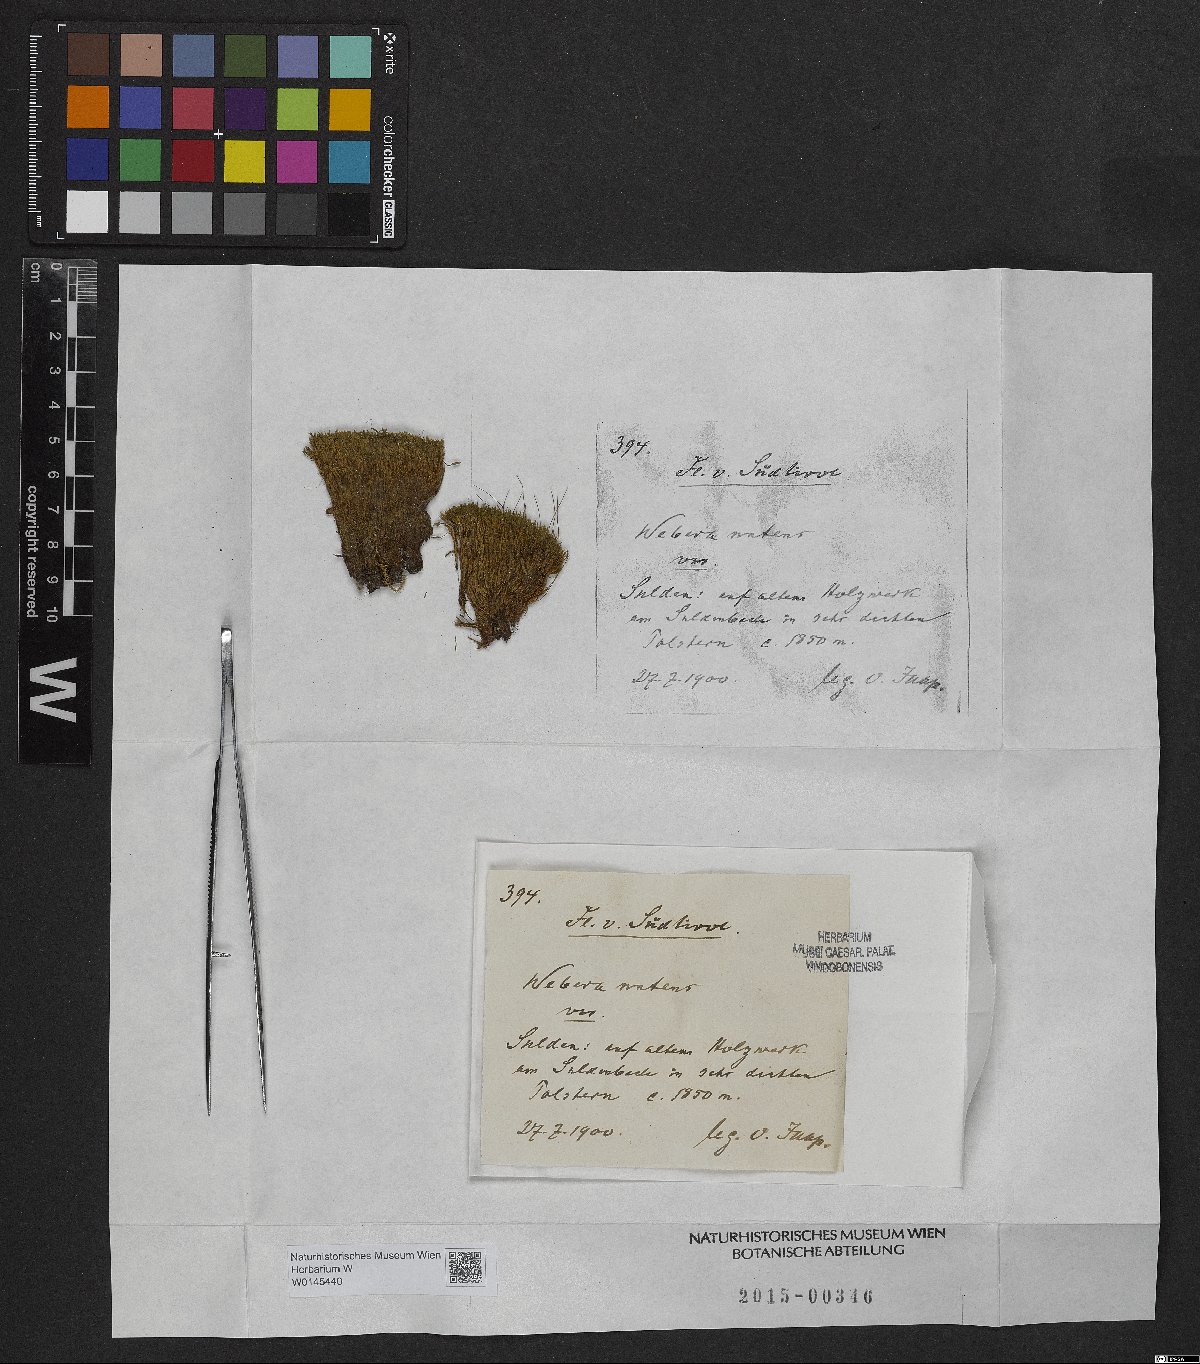 xrite
colorchecker CLASSIC
mm
cm
0 1 2 3 4 5 6 7 8 9 10
copyright reserved
W
394.
Fl. v. Südtirol
Webera nutans
var.
Sulden: auf altem Holzwerk
am Suldenbache in sehr dichten
Polstern c. 1850 m.
27.7.1900. leg. O. Jaap.
394.
Fl. v. Südtirol.
HERBARIUM
MUSEI CAESAR. PALAT.
VINDOBONENSIS
Webera nutans
var.
Sulden: auf altem Holzwerk
am Suldenbache in sehr dichten
Polstern c. 1850 m.
27.7.1900. leg. O. Jaap.
NATURHISTORISCHES MUSEUM WIEN
BOTANISCHE ABTEILUNG
2015-00346
Naturhistorisches Museum Wien
Herbarium W
W0145440